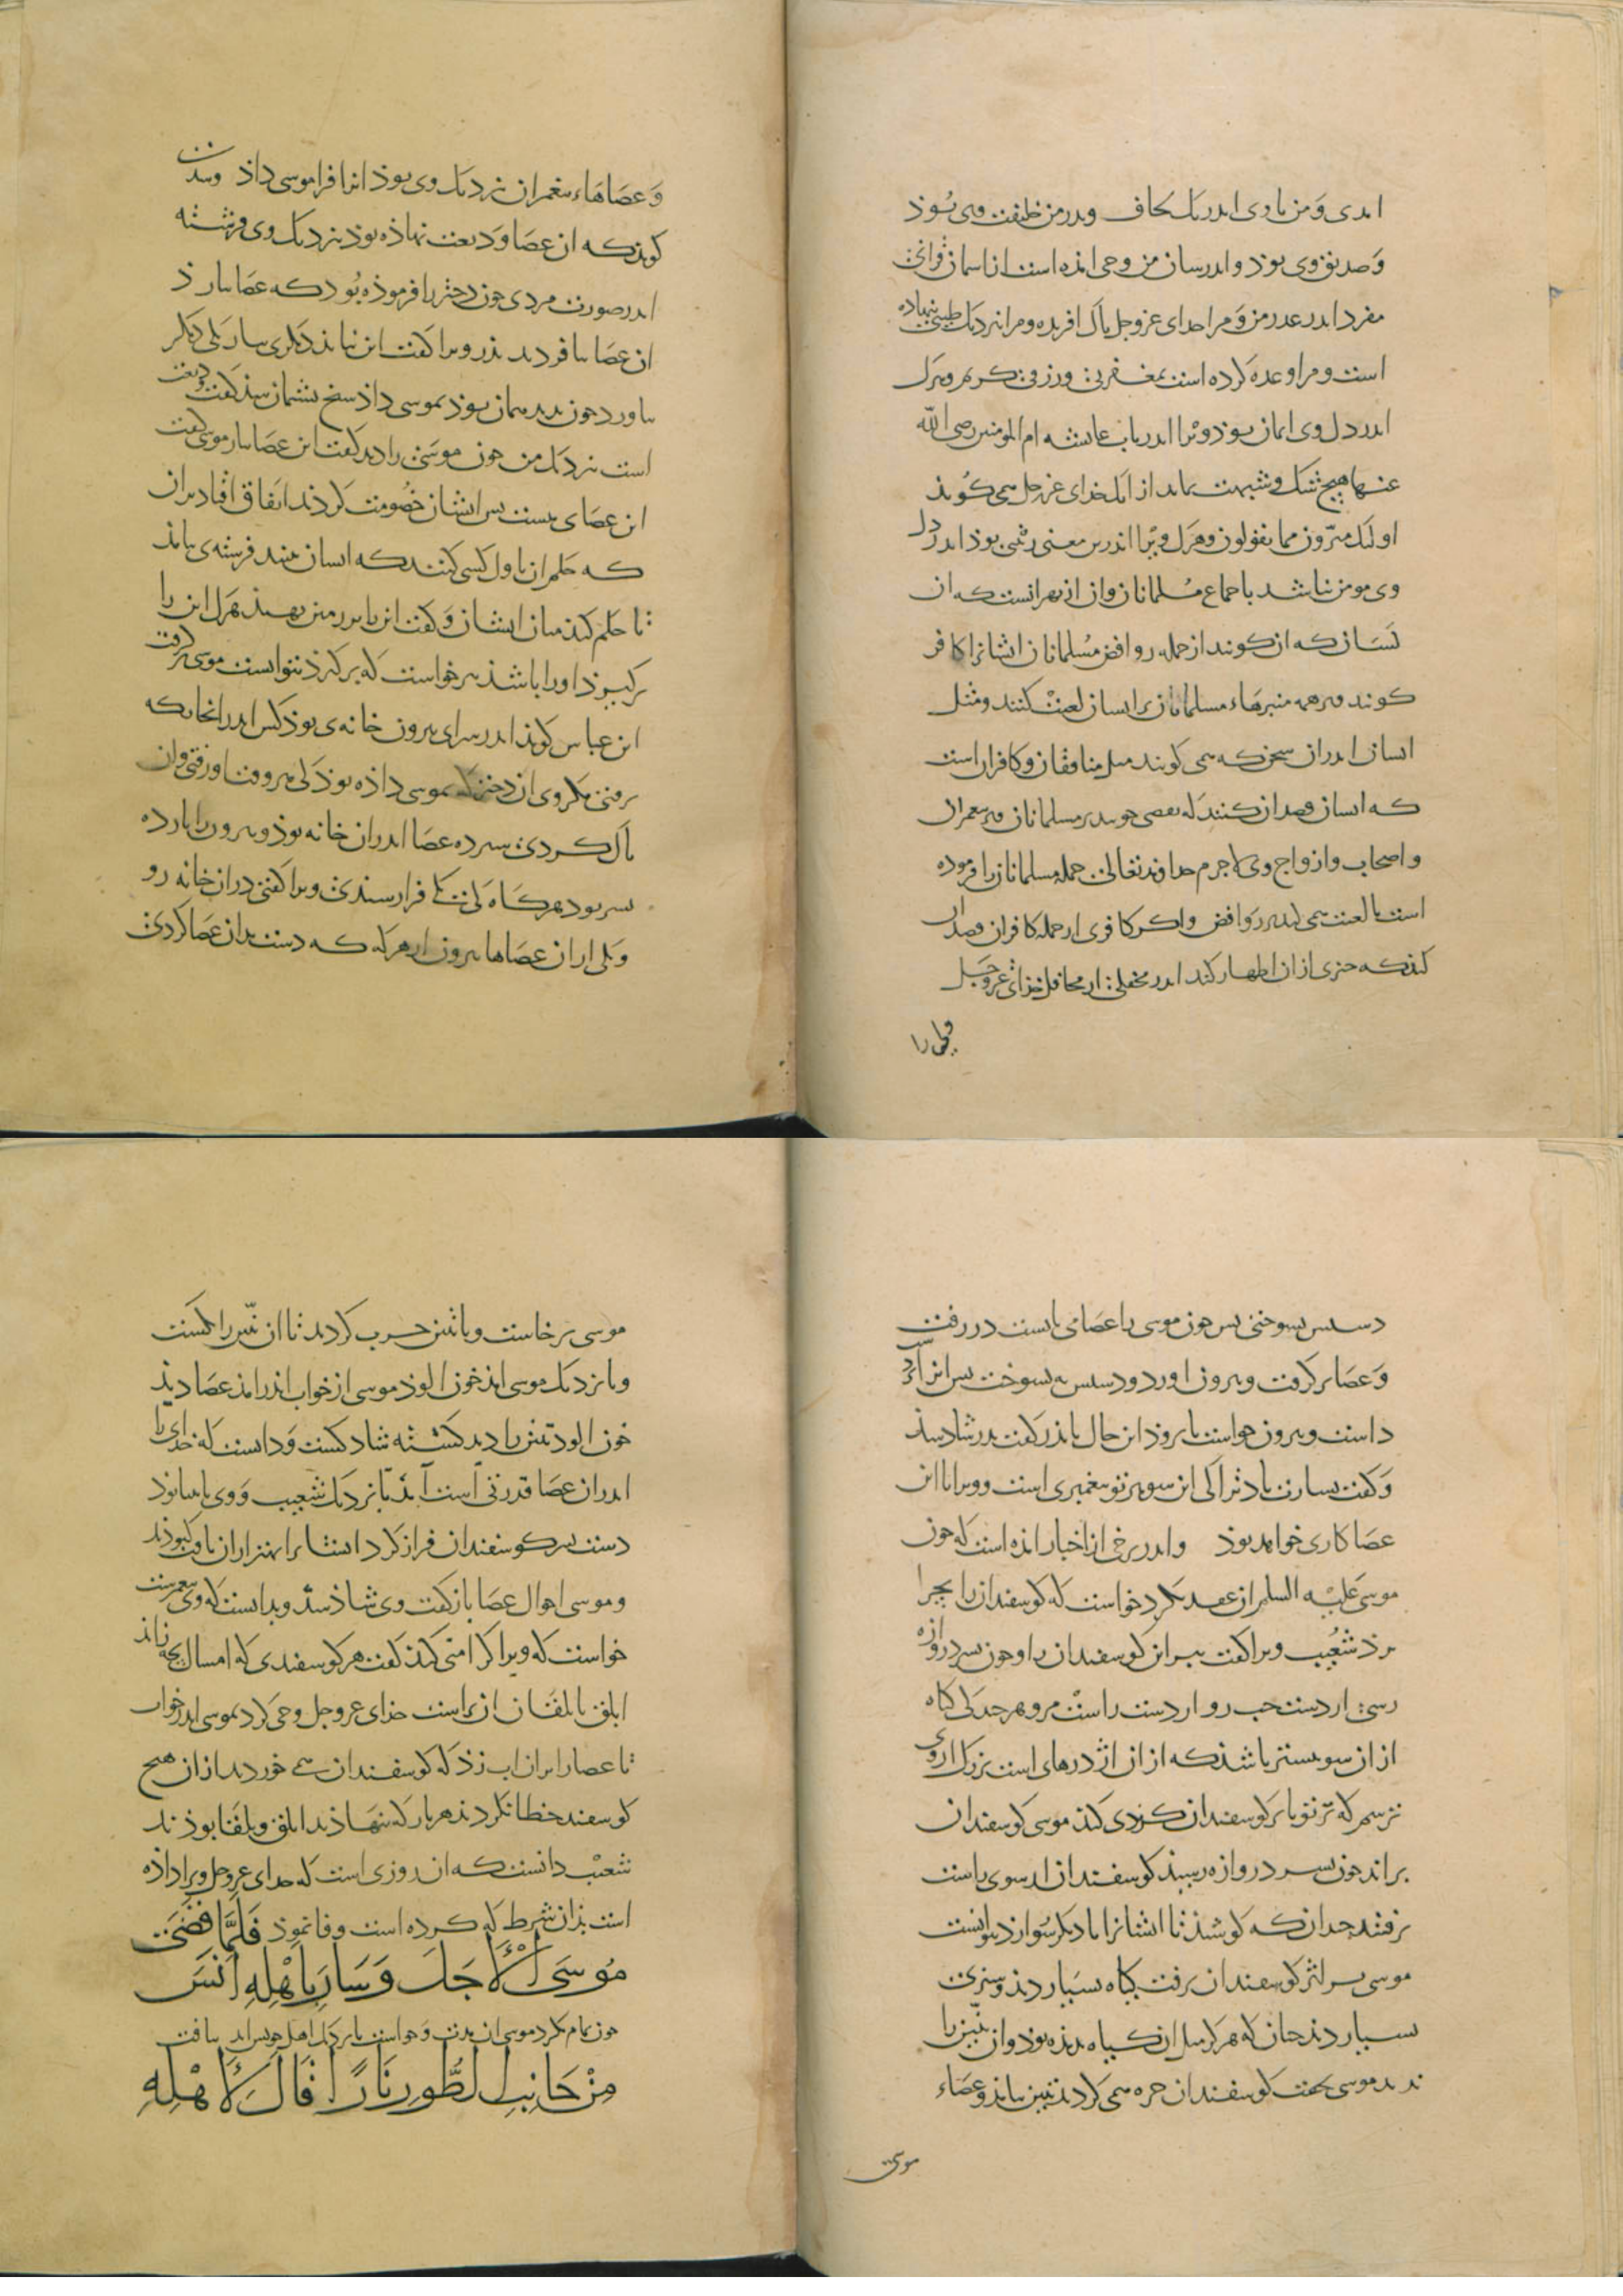 امدی و من با وی اندر یک لحاف و پدر من خلیفت وی بوذ
و صدیق وی بوذ و اندر سان من وحی امذه است از اسمان قرانی
مفرد اندر عدر من و مرا خدای عز و جل پاک افریده و مرا نزدیک طیبی نهاده
است و مرا وعده کرده است بمغفرتی و رزقی کریم و هرک
اندر دل وی ایمان بوذ ویرا اندر باب عایشه ام المومنین رضی الله
عنها هیچ شک و شبهت نماند از انک خدای عز و جل می کوید
اولئک مبرّون مما یقولون و هرک ویرا اندرین معنی شکی بوذ اندر دل
وی مومن نباشد باجماع مسلمانان و ان از بهر انست که ان
کسان که ان کویند از جمله روافض مسلمانان ایشانرا کافر
کویند و بر همه منبرهاء مسلمانان بر ایشان لعنت کنند و مثل
ایشان اندر ان سخن که می کویند مثل منافقان و کافران است
که ایشان قصد ان کنند که نقصی جویند بر مسلمانان و بر پیغمبران
و اصحاب و ازواج وی لاجرم خداوند تعالی جمله مسلمانان را فرموده
است تا لعنت می کنند بر روافض و اکر کافری از جمله کافران قصد ان
کند که چیزی از ان اظهار کند اندر محفلی از محافل خذای عز و جل
و عصاهاء پیغمبران نزدیک وی بوذ انرا فرا موسی داذ
کویند که ان عصا ودیعت نهاذه بوذ نزدیک وی فرشته
اندر صورت مردی چون دختر را فرموذه بود که عصا بیار ذ
ان عصا بیافرد پذر ویرا کفت این نبایذ دیکری بیار یکی دیکر
بیاورد چون بدید همان بوذ بموسی داذ سخ پشیمان شذ کفت ودیعت
است نزدیک من چون موسی را دید کفت این عصا بیار موسی کفت
این عصای منست پس ایشان خصومت کردند اتفاق افتاد بران
که حکم ان باول کسی کنند که ایشان بینند فرشته‌ی بیامذ
تا حکم کند میان ایشان و کفت این را بر زمین نهید هرک این را
برکیرذ او را باشذ پیر خواست که برکیرذ نتوانست موسی برکرفت
ابن عباس کویذ اندر سرای بیرون خانه‌ی بوذ کس اندر انجا که
نرفتی مکر وی ان دختر که بموسی داذه بوذ کی هر وقت اورفتی و ان
پاک کردی سیزده عصا اندران خانه بوذ ویرون را یازده
پسر بود هرکاه کی یکی فرا رسیدی ویرا کفتی در ان خانه رو
و یکی از ان عصاها بیرون ار هرکه که دست بدان عصا کردی
دستش بسوختی پس چون موسی را عصا می بایست در رفت
و عصا برکرفت و بیرون اورد و دستش نسوخت پس
دانست و بیرون خواست ان حال با پذر کفت پدر شاد شذ
و کفت بشارت باد ترا کی این شوهر تو پیغمبری است و ویرا با این
عصا کاری خواهد بوذ و اندر برخی از اخبار امذه است که چون
موسی علیه السلم ان عهد بکرد خواست که کوسفندان را بچرا
برذ شعیب ویرا کفت ببر این کوسفندان را و چون بسر دروازه
رسی از دست چپ رو از دست راست مرو هر چند کی کیاه
از ان سو بیشتر باشذ که از ان اژدرهای است بزرک از وی
ترسم که ترا و یا بر کوسفندان کزندی کند موسی کوسفندان
براند چون بسر دروازه رسید کوسفندان از سوی راست
برفتند چندان که کوشذ تا ایشانرا با دیکر سو ارد نتوانست
موسی بر اثر کوسفندان برفت کیاه بسیار دند و سبزی
بسیار دند چنان که هرکز مثل ان کیاه ندیذه بوذ و ان تنّین را
ندید موسی بخفت کوسفندان چره می کردند تنین بیامذ و عصاء
موسی
موسی برخاست و با تنین حرب کردند تا ان تنّین را بکشت
و با نزدیک موسی امذ خون الوذ موسی از خواب اندر امذ عصا دیذ
خون الود تنین را دید کشته شاد کشت و دانست که خدای را
اندر ان عصا قدرتی است امد با نزدیک شعیب و وی نابینا بوذ
دست بر کوسفندان فراز کرد ایشانرا بهتر از ان یافت که بوذند
و موسی احوال عصا باز کفت وی شاذ شد و بدانست که وی پیغمبرست
خواست که ویرا کرامتی کند کفت هر کوسفندی که امسال بچه زاند
ابلق یا بلقا ان تراست خدای عز و جل وحی کرد بموسی اندر خواب
تا عصا را بران اب زذ که کوسفندان می خوردند از ان هیچ
کوسفند خطا نکردند هر بار که بنهاذند ابلق و بلقا بوذند
شعیب دانست که ان روزی است که خدای عز و جل ویرا داذه
است بذان شرط که کرده است وفا نموذ فَلَمَّا قَضَىٰ
مُوسَى الْأَجَلَ وَسَارَ بِأَهْلِهِ آنَسَ
چون تمام کرد موسی ان مدت و خواست با نزدیک اهل خویش اید بیافت
مِنْ جَانِبِ الطُّورِ نَارًا قَالَ لِأَهْلِهِ